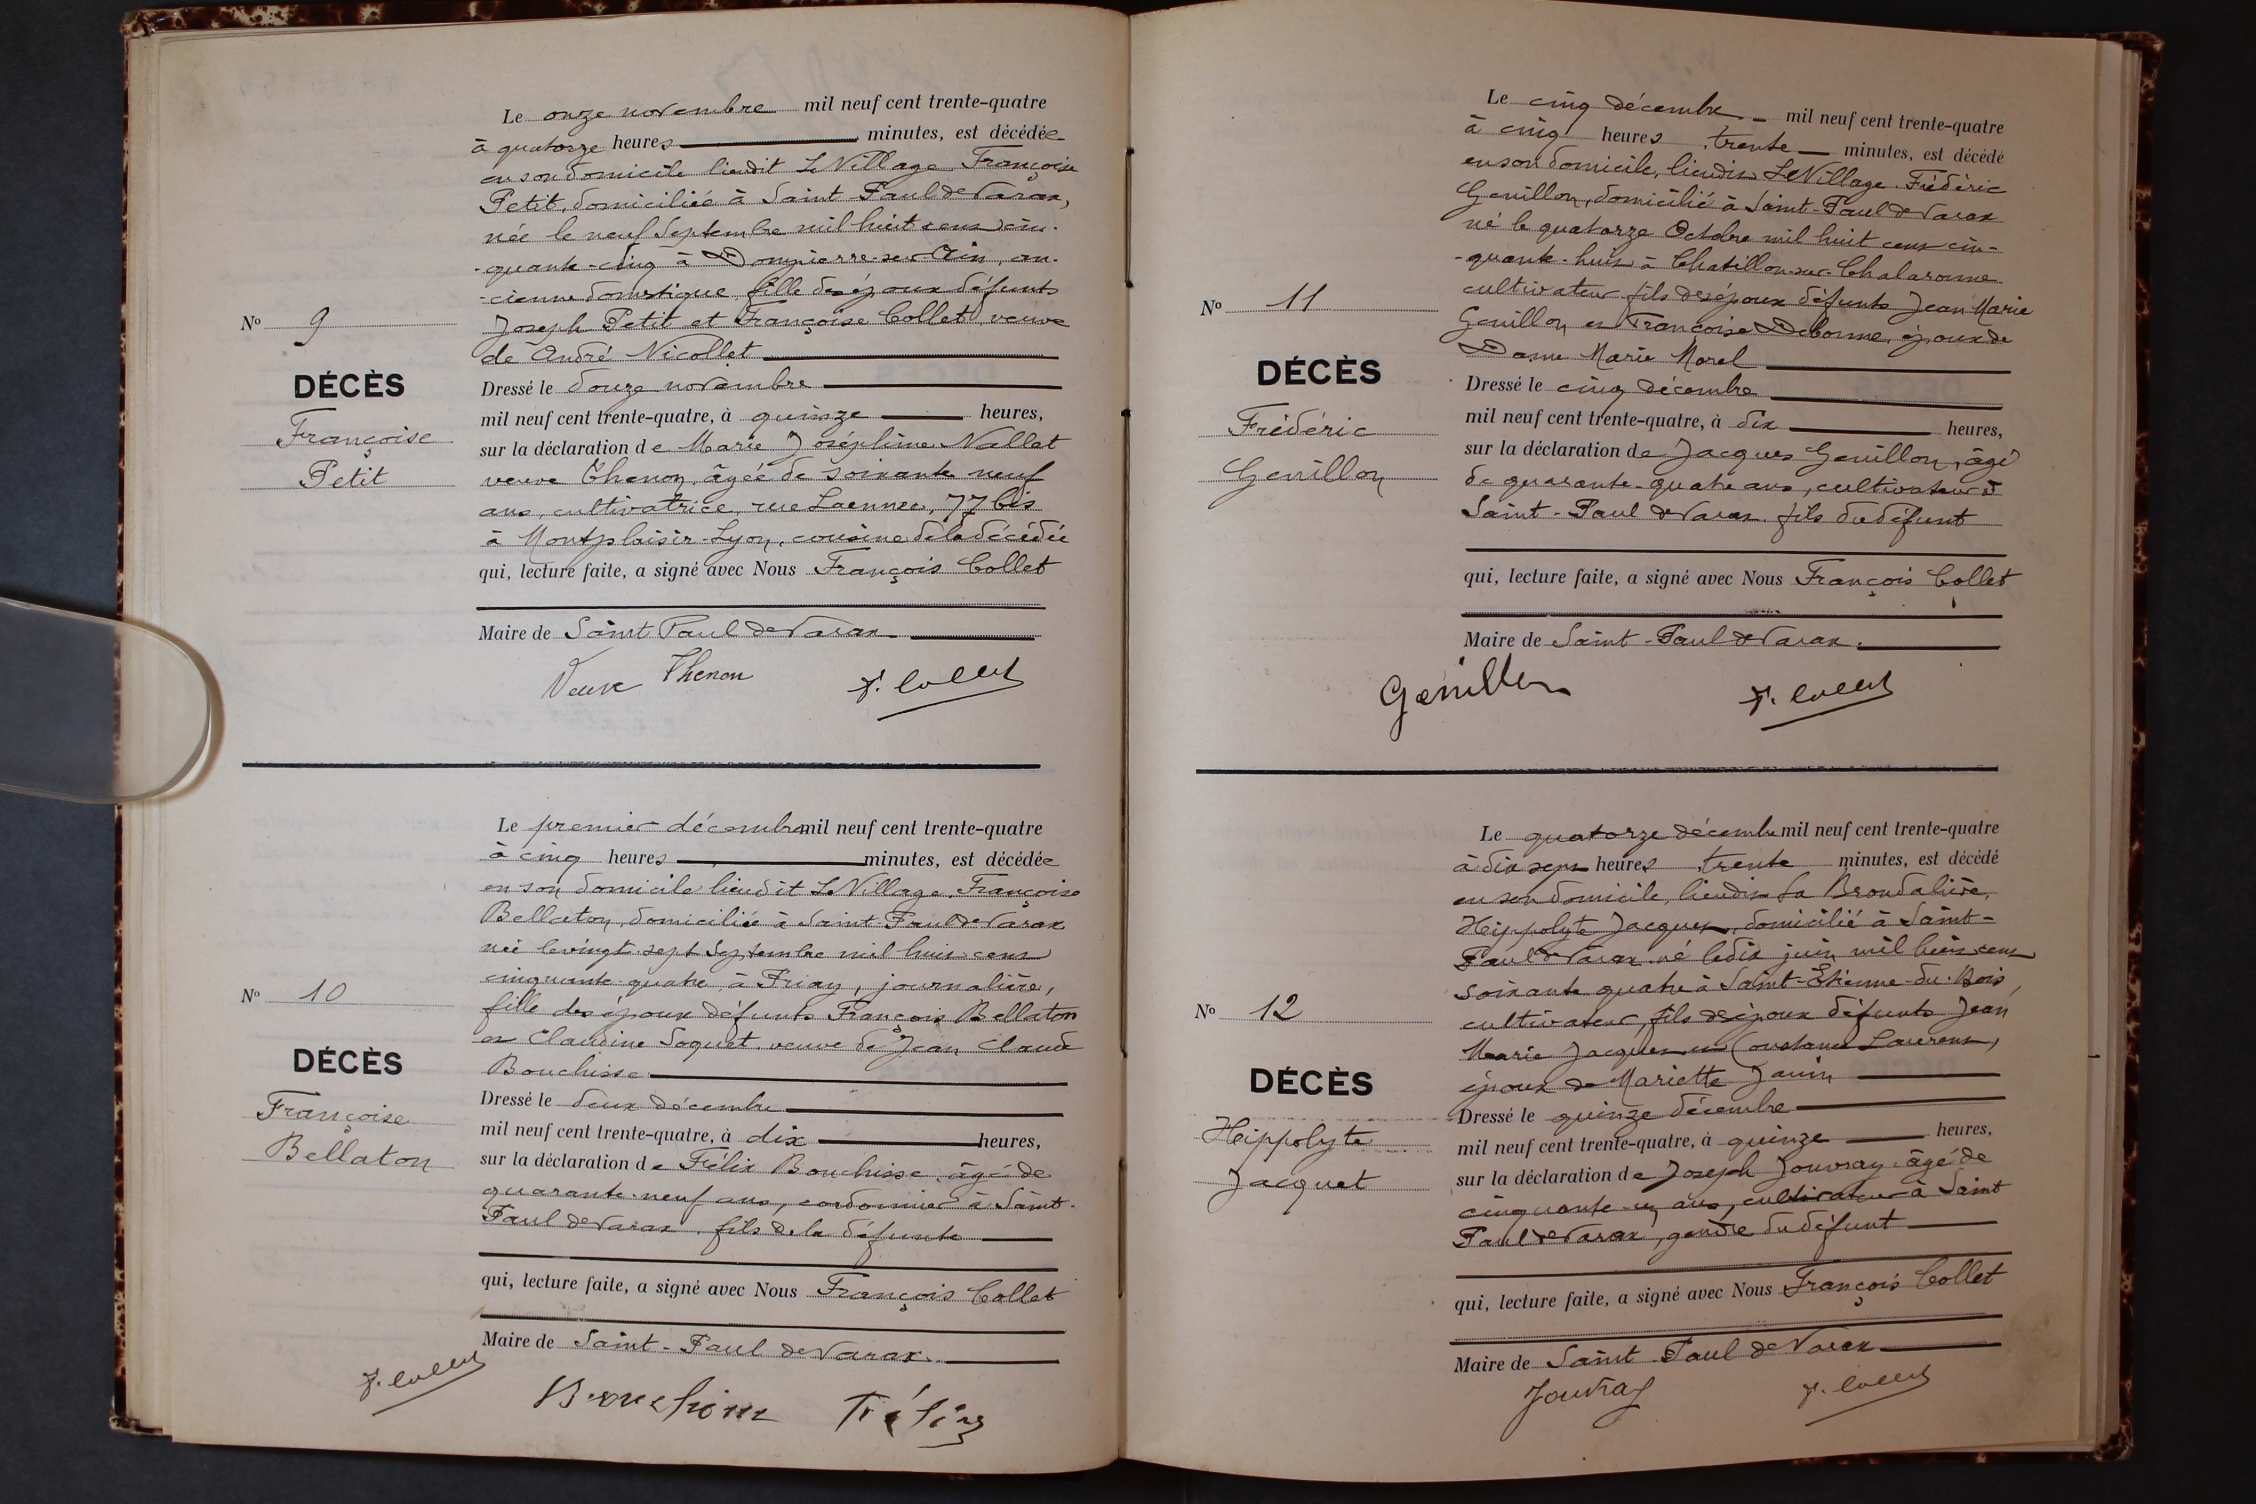 Le onze novembre mil neuf cent trente-quatre
à quatorze heures minutes, est décédée
en son domicile lieudit Le Village Françoise
Petit, domiciliée à Saint Paul de Varax,
née le neuf Septembre mil huit cent cin-
-quante-cinq à Dompierre-sur Ain, an-
-cienne domestique fille des époux défunts
Joseph Petit et Françoise Collet, veuve
de André Nicollet
Nº 9
DÉCÈS
Françoise
Petit
Dressé le douze novembre
mil neuf cent trente-quatre, à quinze heures,
sur la déclaration de Marie Joséphine Nallet
veuve Thenon, âgée de soixante neuf
ans, cultivatrice, rue Laennec, 77 bis
à Montplaisir-Lyon, cousine de la décédée
qui, lecture faite, a signé avec Nous François Collet
Maire de Saint Paul de Varax
Veuve Thenon F. Collet
Le premier décembre mil neuf cent trente-quatre
à cinq heures minutes, est décédée
en son domicile lieudit Le Village, Françoise
Bellaton, domiciliée à Saint-Paul de Varax
née le vingt-sept Septembre mil huit-cent
cinquante-quatre à Priay, journalière,
fille des époux défunts François Bellaton
et Claudine Soquet veuve de Jean Claude
Bouchisse
Nº 10
DÉCÈS
Françoise
Bellaton
Dressé le deux décembre
mil neuf cent trente-quatre, à dix heures,
sur la déclaration de Félix Bouchisse, âgé de
quarante-neuf ans, cordonnier à Saint-
Paul de Varax, fils de la défunte
qui, lecture faite, a signé avec Nous François Collet
Maire de Saint-Paul de Varax
F. Collet
Le cinq décembre mil neuf cent trente-quatre
à cinq heures trente minutes, est décédé
en son domicile, lieudit Le Village Frédéric
Genillon, domicilié à Saint-Paul de Varax
né le quatorze Octobre mil huit cent cin-
-quante-huit à Chatillon-sur-Chalaronne
cultivateur fils des époux défunts Jean Marie
Genillon et Françoise Debonne, époux de
Dame Marie Morel
Nº 11
DÉCÈS
Frédéric
Genillon
Dressé le cinq décembre
mil neuf cent trente-quatre, à dix heures,
sur la déclaration de Jacques Genillon, âgé
de quarante-quatre ans, cultivateur à
Saint-Paul de Varax fils du défunt
qui, lecture faite, a signé avec Nous François Collet
Maire de Saint-Paul de Varax.
Genillon F. Collet
Le quatorze décembre mil neuf cent trente-quatre
à dix sept heures trente minutes, est décédé
en son domicile, lieudit La Brondalière,
Hippolyte Jacquet, domicilié à Saint-
Paul de Varax né le dix juin mil huit cent
soixante quatre à Saint-Etienne-du-Bois,
cultivateur, fils des époux défunts Jean
Marie Jacquet et Constance Laurent,
époux de Mariette Janin
Nº 12
DÉCÈS
Hippolyte
Jacquet
Dressé le quinze décembre
mil neuf cent trente-quatre, à quinze heures,
sur la déclaration de Joseph Jouvray âgé de
cinquante-un ans, cultivateur à Saint
Paul de Varax, gendre du défunt
qui, lecture faite, a signé avec Nous François Collet
Maire de Saint Paul de Varax
Jouvray F. Collet